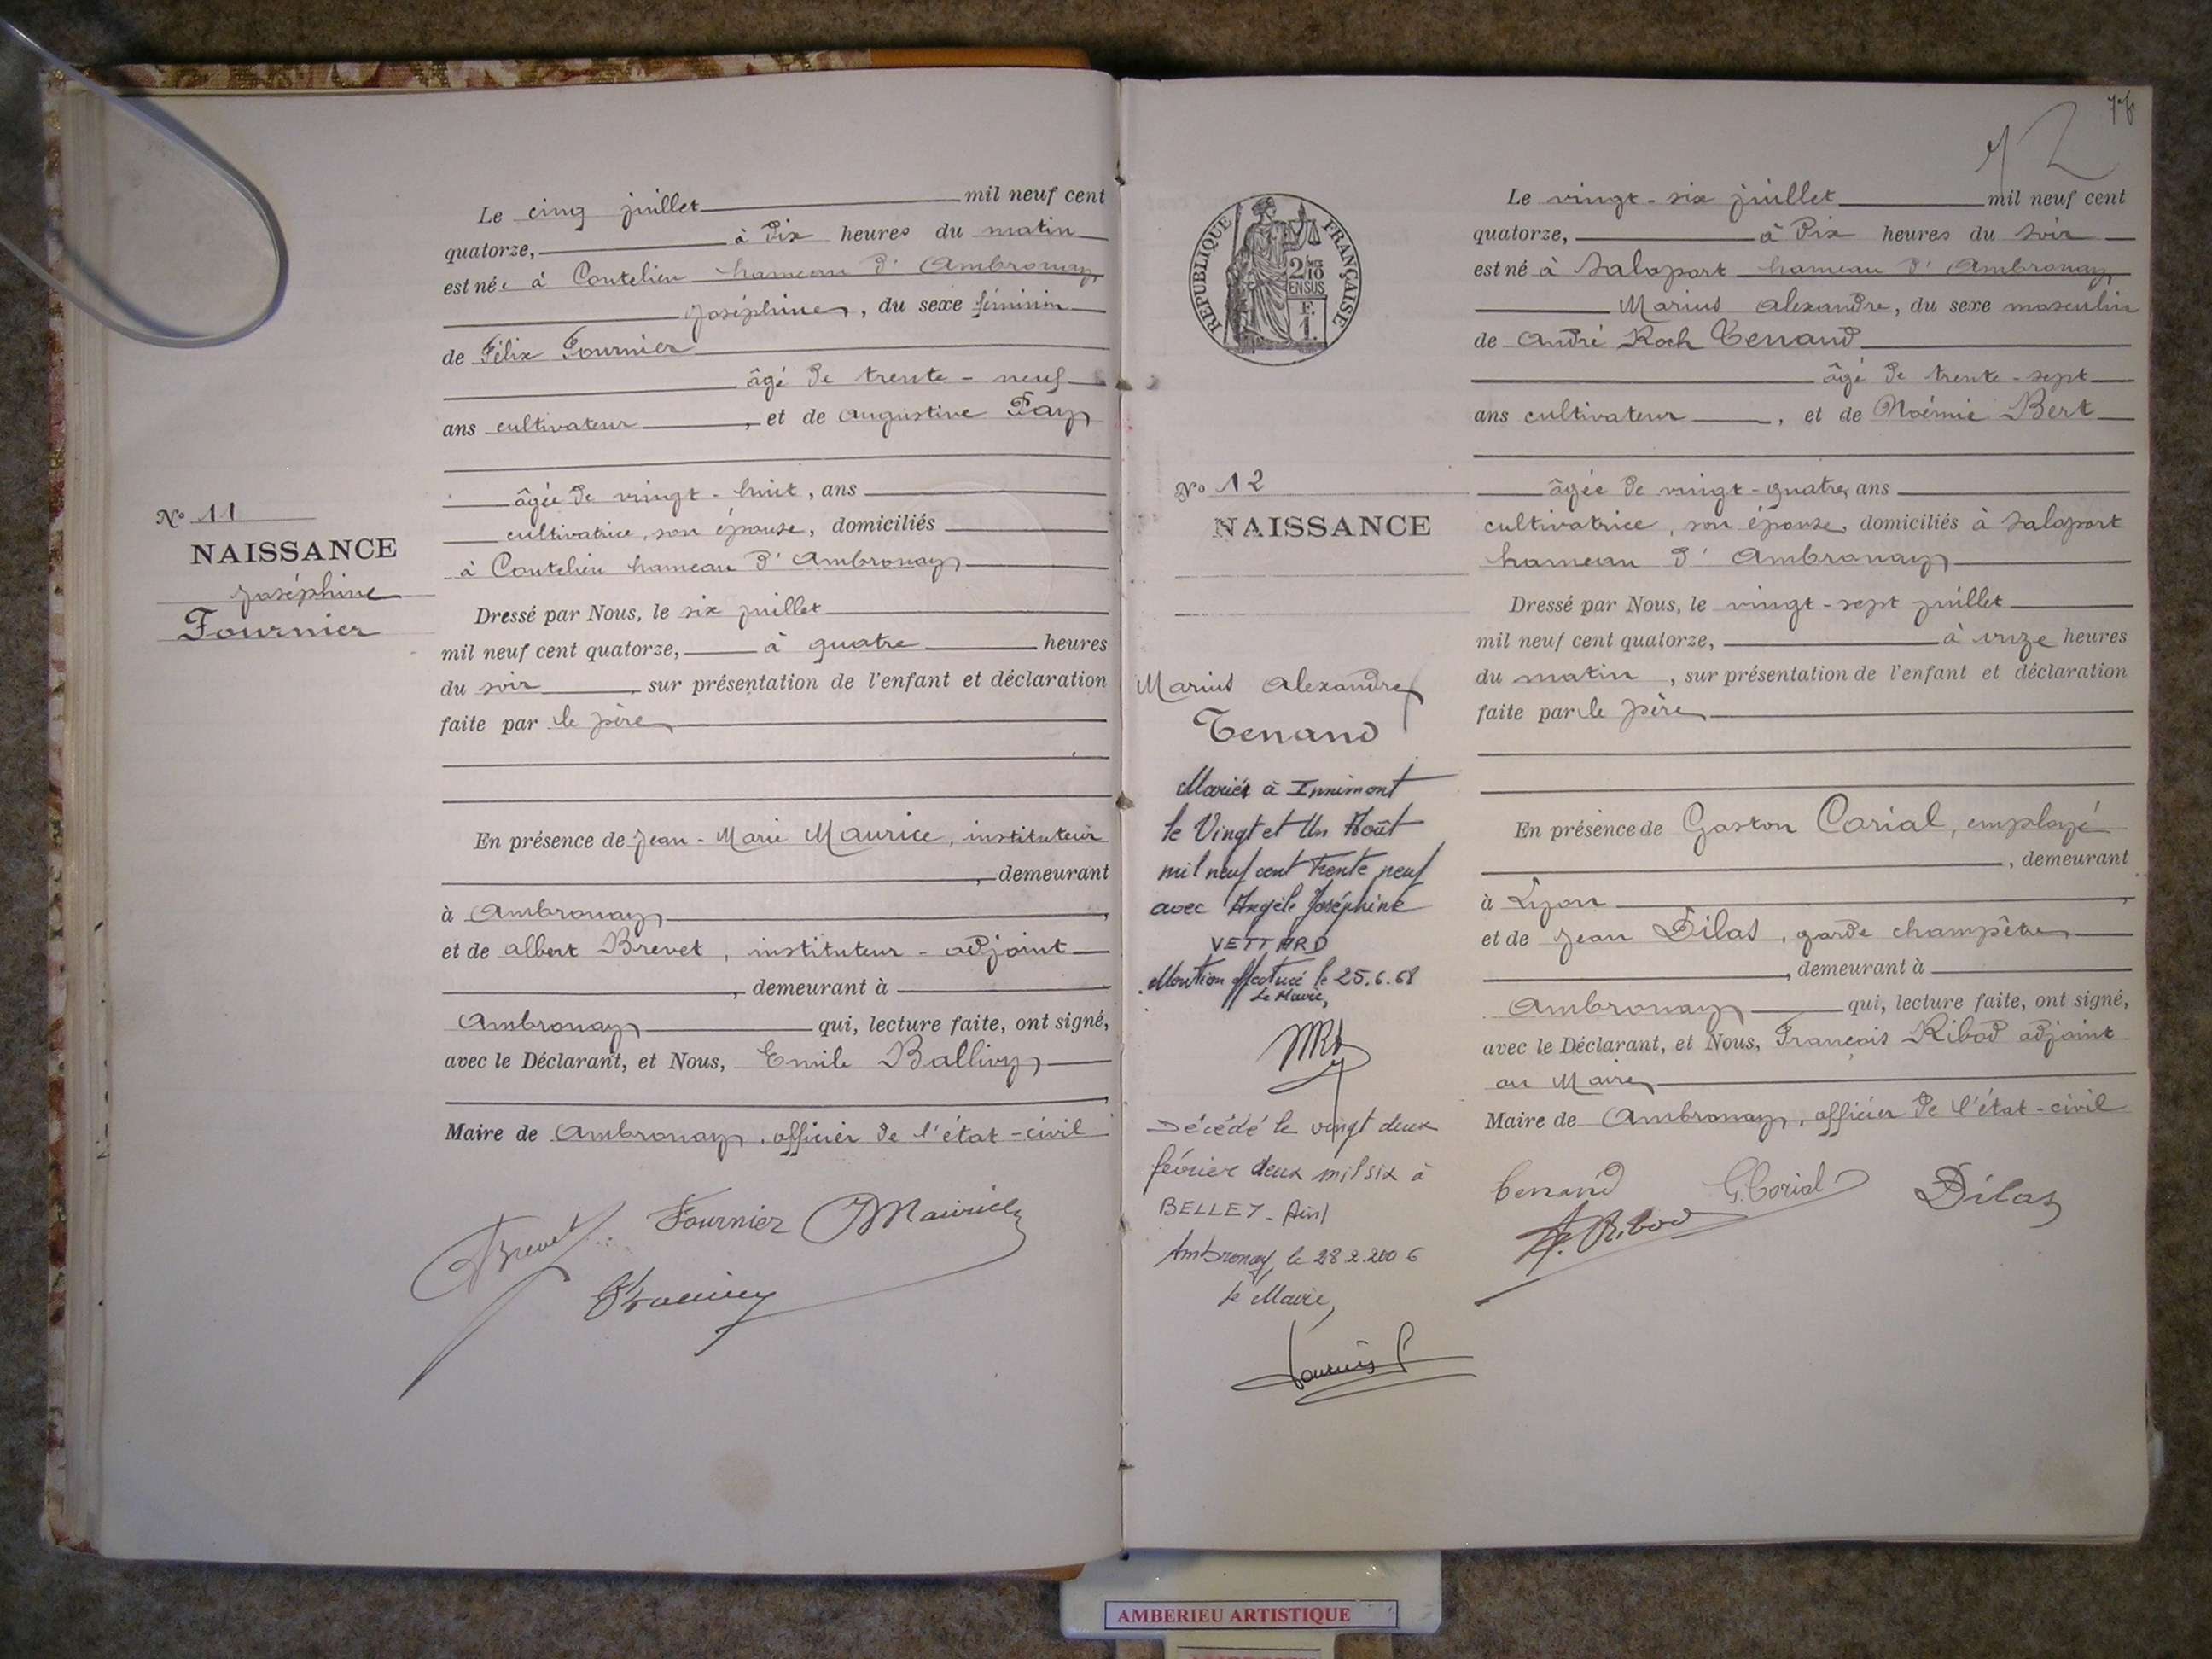 Nº 11
NAISSANCE
Joséphine
Fournier
Le cinq juillet mil neuf cent
quatorze, à dix heures du matin
est née à Coutelieu hameau d'Ambronay
Joséphine, du sexe féminin
de Félix Fournier
âgé de trente-neuf
ans cultivateur, et de Augustine Fay
âgée de vingt-huit, ans
cultivatrice, son épouse, domiciliés
à Coutelieu hameau d'Ambronay
Dressé par Nous, le six juillet
mil neuf cent quatorze, à quatre heures
du soir, sur présentation de l'enfant et déclaration
faite par le père
En présence de Jean-Marie Maurice, instituteur
, demeurant
à Ambronay,
et de Albert Brevet, instituteur-adjoint
, demeurant à
Ambronay qui, lecture faite, ont signé,
avec le Déclarant, et Nous, Emile Ballivy
Maire de Ambronay, officier de l'état-civil
Brevet Fournier Maurice
72
RÉPUBLIQUE FRANÇAISE
2/10
EN SUS
F.
1.
Nº 12
NAISSANCE
Marius Alexandre
Tenand
Mariés à Innimont
le Vingt et Un Août
mil neuf cent Trente neuf
avec Angèle Joséphine
VETTARD
Mention effectuée le 25.6.68
Le Maire,
Décédé le vingt deux
février deux mil six à
BELLEY - Ain)
Ambronay, le 28.2.2006
le Maire,
Le vingt-six juillet mil neuf cent
quatorze, à dix heures du soir
est né à Salaport hameau d'Ambronay
Marius Alexandre, du sexe masculin
de André Roch Tenand
âgé de trente-sept
ans cultivateur, et de Noémie Bert
âgée de vingt-quatre, ans
cultivatrice, son épouse, domiciliés à Salaport
hameau d'Ambronay
Dressé par Nous, le vingt-sept juillet
mil neuf cent quatorze, à onze heures
du matin, sur présentation de l'enfant et déclaration
faite par le père
En présence de Gaston Corial, employé
, demeurant
à Lyon,
et de Jean Dilas, garde champêtre
, demeurant à
Ambronay qui, lecture faite, ont signé,
avec le Déclarant, et Nous, François Ribod adjoint
au Maire
Maire de Ambronay, officier de l'état-civil
Tenand G. Corial Dilas
F. Ribod
AMBERIEU ARTISTIQUE